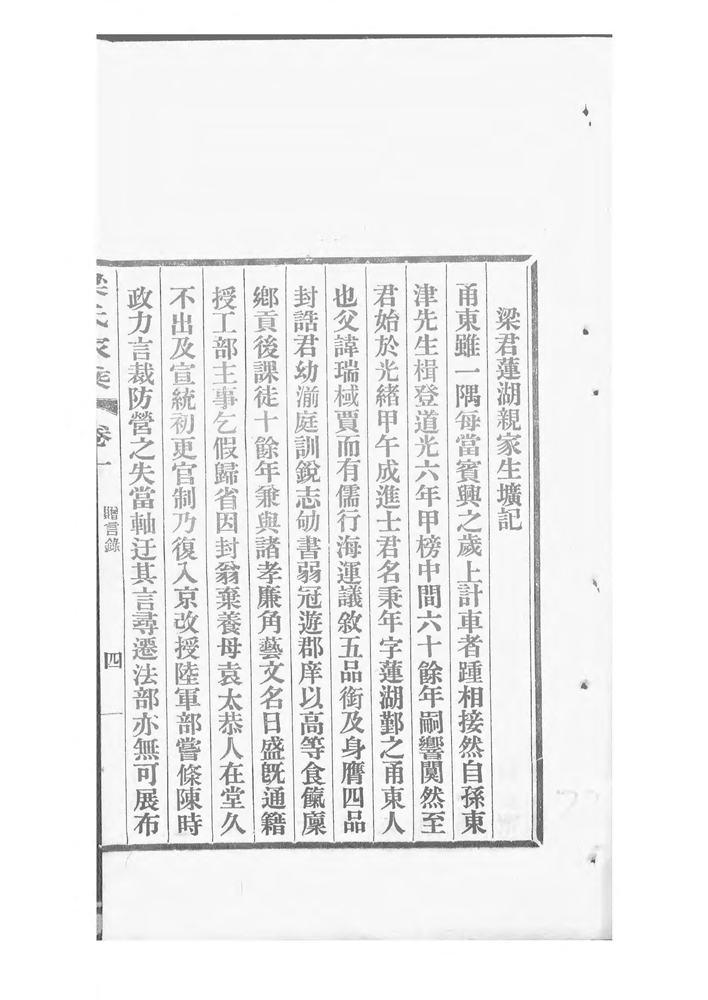 梁君蓮湖親家生壙記
甬東雖一隅每當賓興之歲上計車者踵相接然自孫東
津先生楫登道光六年甲榜中間六十餘年嗣響闃然至
君始於光緒甲午成進士君名秉年字蓮湖鄞之甬東人
也父諱瑞棫賈而有儒行海運議敘五品銜及身膺四品
封誥君幼湔庭訓銳志劬書弱冠遊郡庠以高等食餼廩
鄉貢後課徒十餘年兼與諸孝廉角藝文名日盛旣通籍
授工部主事乞假歸省因封翁棄養母袁太恭人在堂久
不出及宣統初更官制乃復入京改授陸軍部嘗條陳時
政力言裁防營之失當軸迂其言尋遷法部亦無可展布
卷一
贈言錄
四